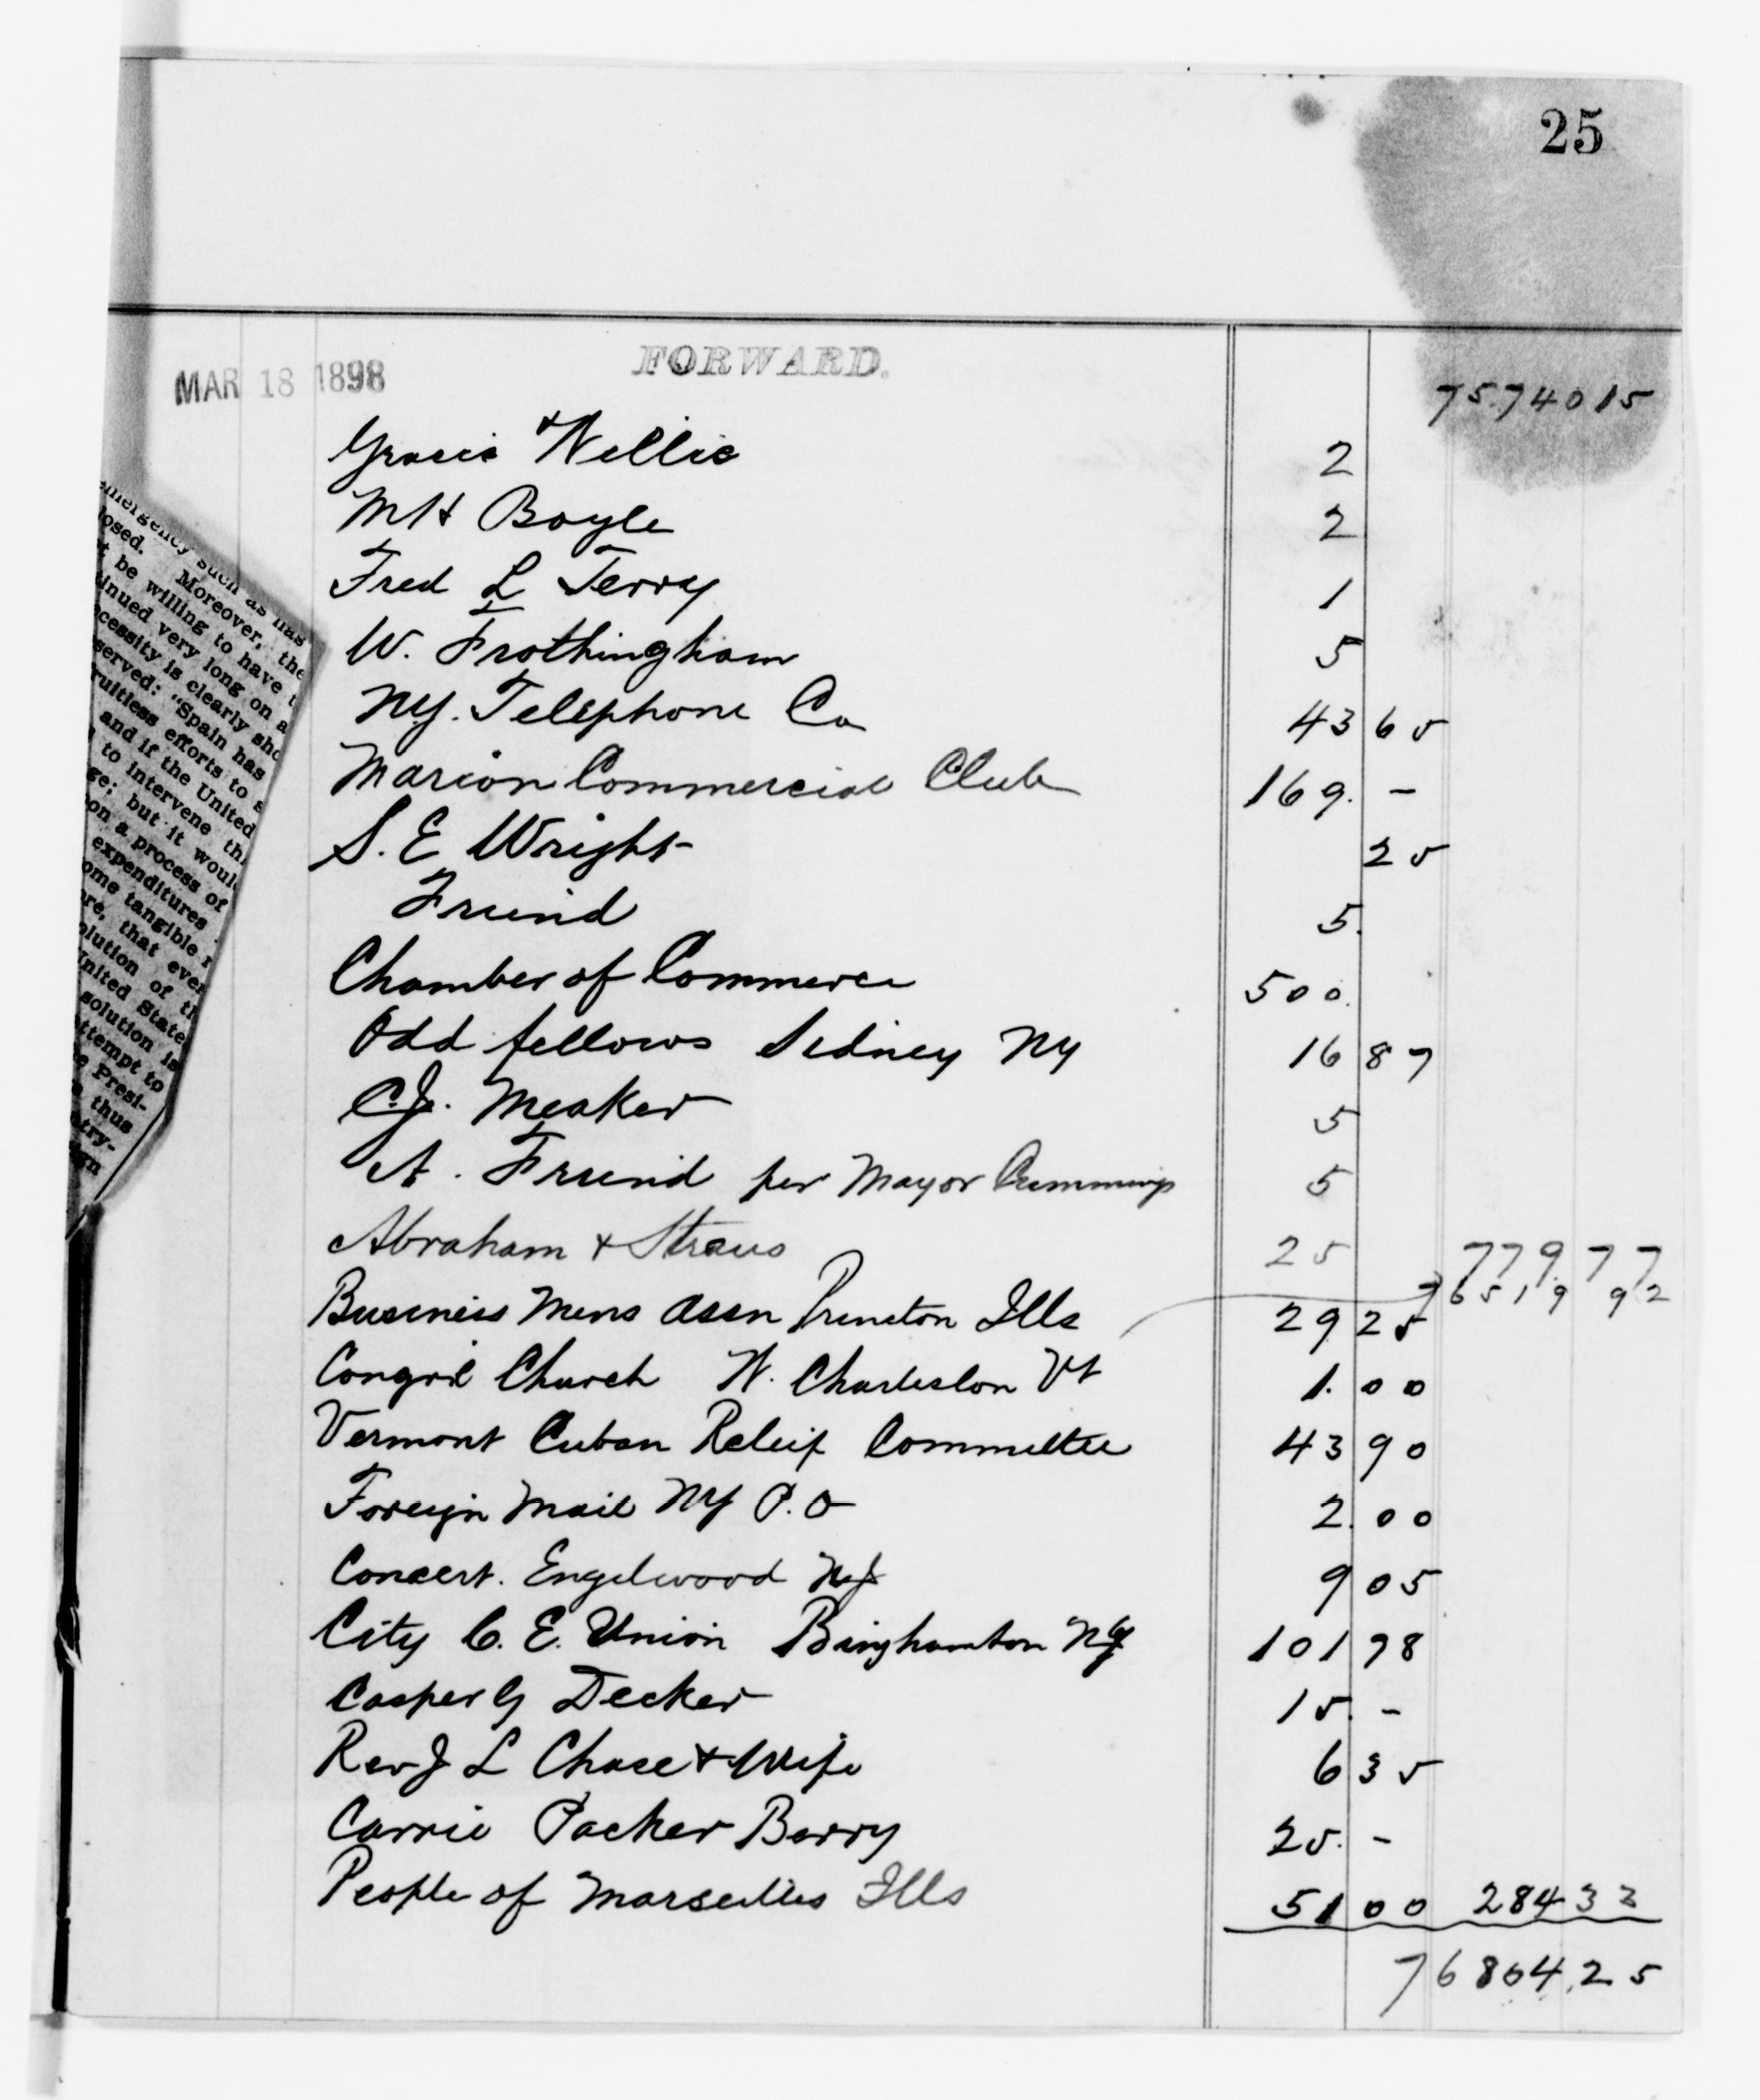 25
FORWARD.
MAR 18 1898
75.740 15
Gracie & Nellie 2
M H Boyle 2
Fred L Terry 1
W. Frothingham 5
NY. Telephone Co 43 65
Marion Commercial Club 169. -
S. E Wright 25
Freind 5.
Chamber of Commerce 500.
Odd fellows Sidney NY 16 87
C.J. Meaker 5
A. Freind per Mayor Cummings 5
Abraham & Straus 25 779 77
76519 92
Business Mens Assn Princton Ills 29 25
Congrl Church W. Charleston Vt 1. 00
Vermont Cuban Releif Committee 43 90
Foreign Mail NY P.O 2. 00
Concert. Englewood NJ 9 05
City C. E. Union Binghamton NY 101 78
Casper G Decker 15. -
Rev J L Chase & Wife 6 35
Carrie Packer Berry 25. -
People of Marseilles Ills 51 00 284 33
76804.25
emergency such as has
losed. Moreover, the
t be willing to have t
tinued very long on a
cessity is clearly sho
served: "Spain has
ruitless efforts to s
and if the United
to intervene th
ge; but it woul
on a process of
expenditures
ome tangible r
re, that ever
olution of th
nited State
solution is
ttempt to
e Presi-
thus
try-